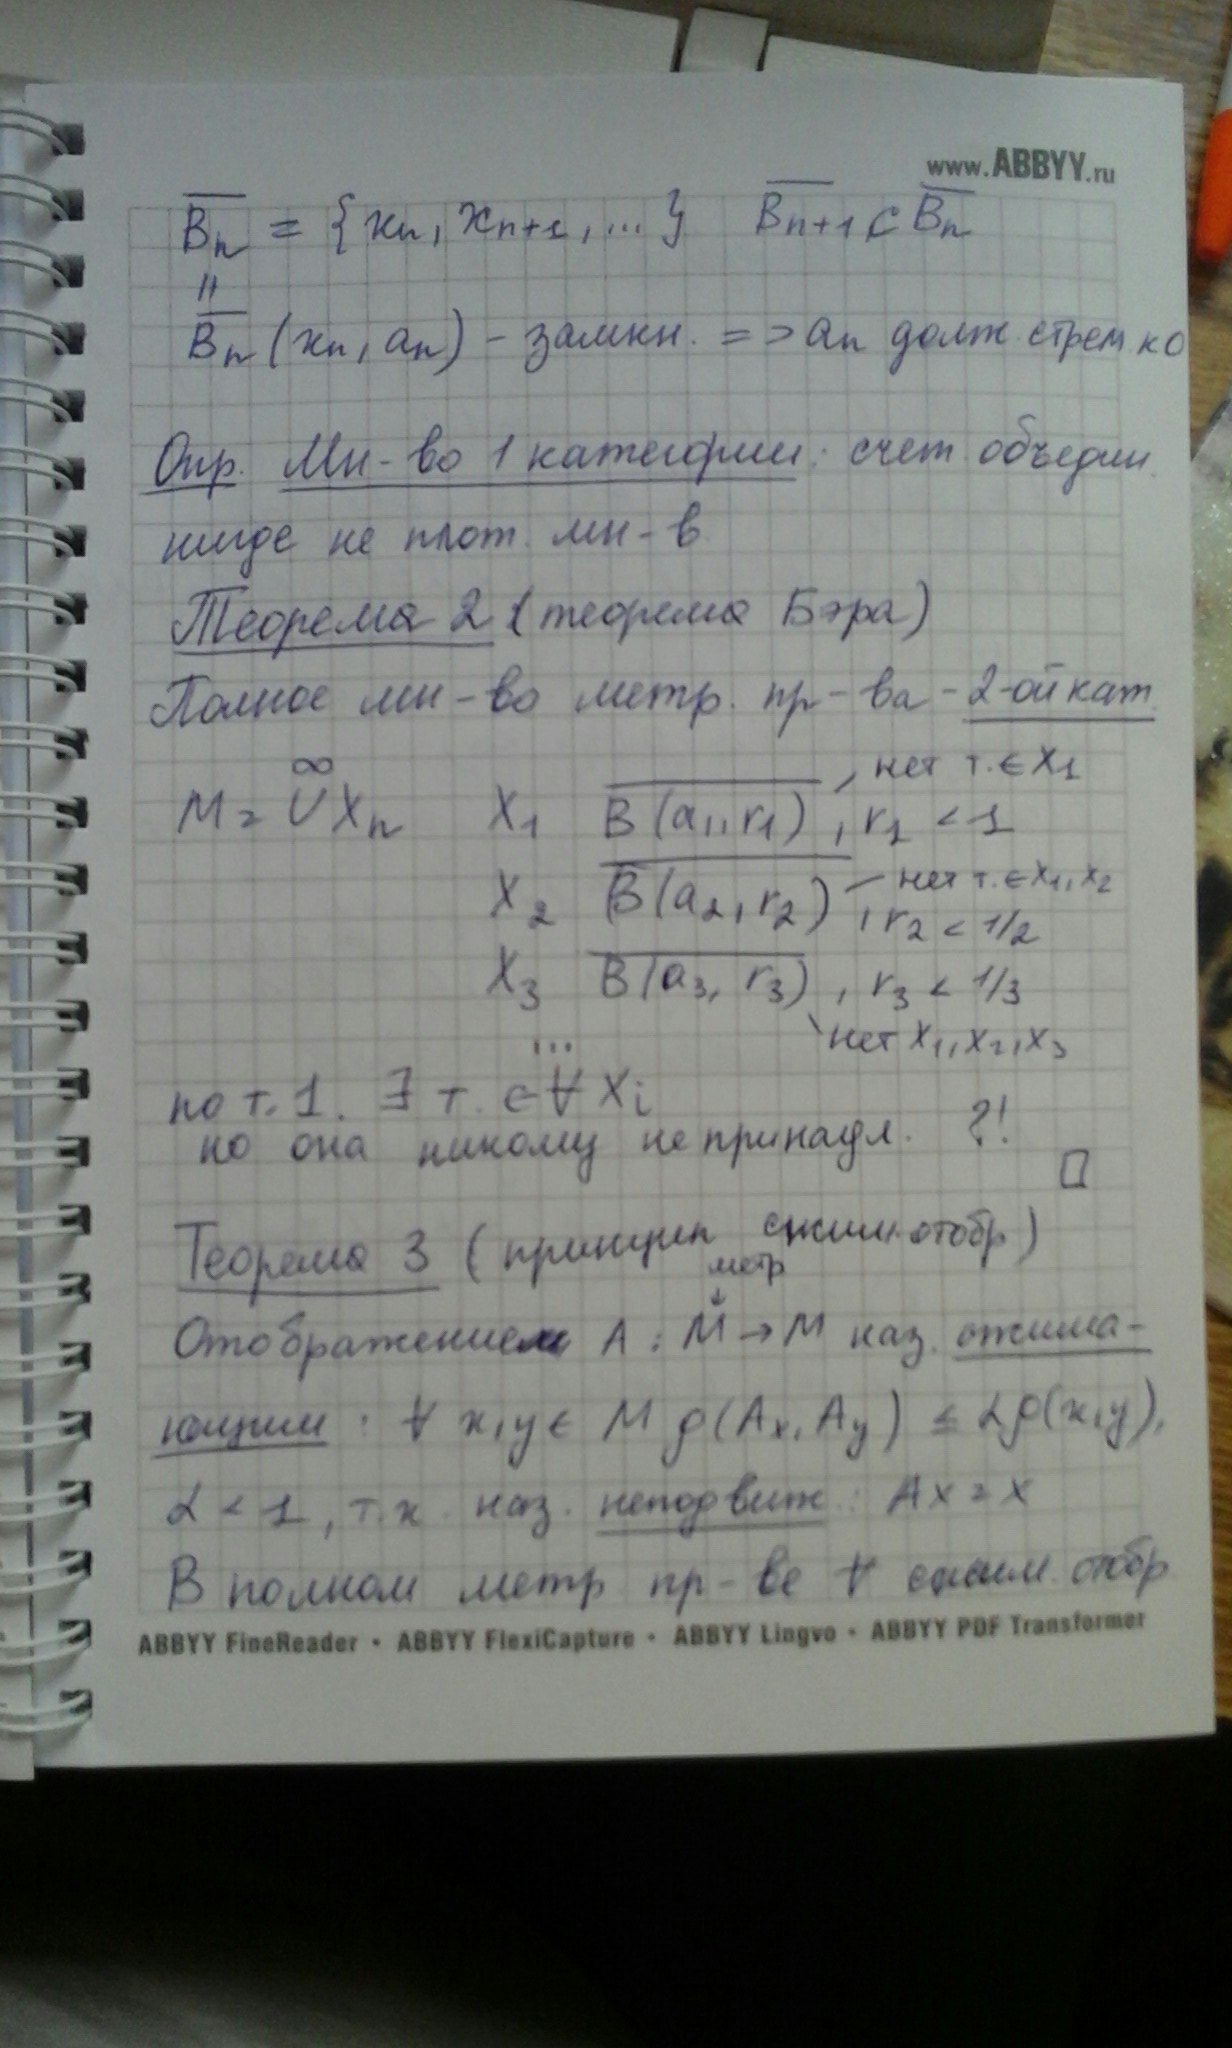 www.ABBYY.ru
B̅n = {xn, xn+1, ...} B̅n+1 ⊂ B̅n
॥
B̅n (xn, an) – замкн. => an долж. стрем к 0
Опр. Мн-во 1 категории: счет объедин.
нигде не плот. мн-в
Теорема 2 (теорема Бэра)
Полное мн-во метр. пр-ва – 2-ой кат
нет т. ∈ X1
M = ∞∪Xn X1 B(a1, r1), r1 < 1
нет т. ∈ X1, X2
X2 B(a2, r2), r2 < 1/2
X3 B(a3, r3), r3 < 1/3
... нет X1, X2, X3
по т. 1. ∃ т. ∈ ∀ Xi
но она никому не принадл. ?!
□
Теорема 3 (принцип сжим. отобр)
метр
Отображение A : M → M наз. сжима-
ющим : ∀ x, y ∈ M ρ(Ax, Ay) ≤ αρ(x, y),
α < 1, т. x наз. неподвиж.: Ax = x
В полном метр пр-ве ∀ сжим. отобр
ABBYY FineReader • ABBYY FlexiCapture • ABBYY Lingvo • ABBYY PDF Transformer